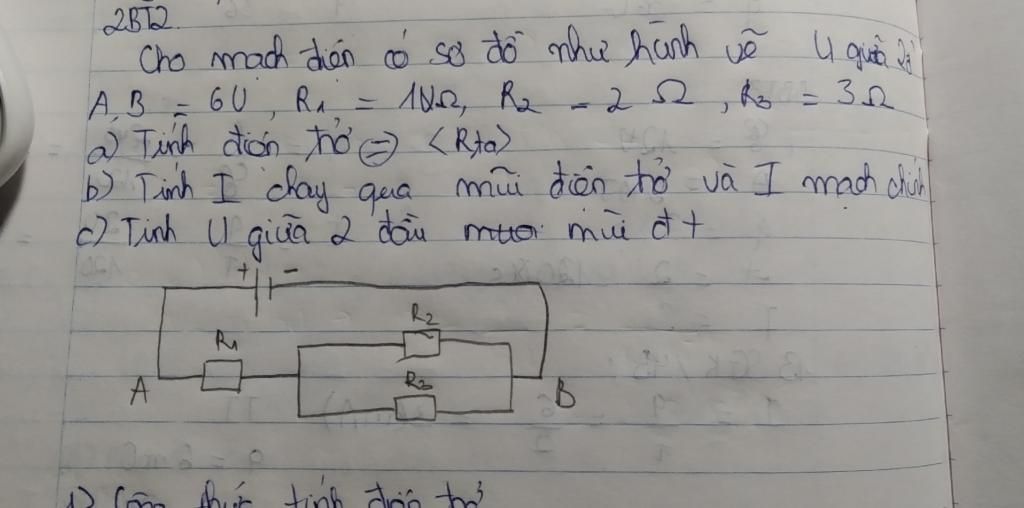 2BT2.
Cho mạch điện có sơ đồ như hình vẽ U giữa 2đ
A, B = 6V, R1 = 1Ω, R2 = 2Ω, R3 = 3Ω
a) Tính điện trở (=) <Rtđ>
b) Tính I chạy qua mỗi điện trở và I mạch chính
c) Tính U giữa 2 đầu mỗi đt
+ -
R1 R2
A R3 B
1) Công thức tính điện trở